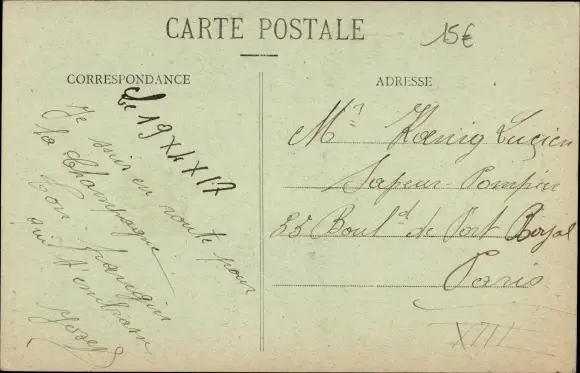 CARTE POSTALE
15€
CORRESPONDANCE
Le 19 X 4 X 17
Je suis en route pour
la Champagne
Ton frangin
qui t'embrasse
Josef
ADRESSE
Mr Kœnig Lucien
Sapeur-Pompier
55 Boul.d de Port Royal
Paris
XIII